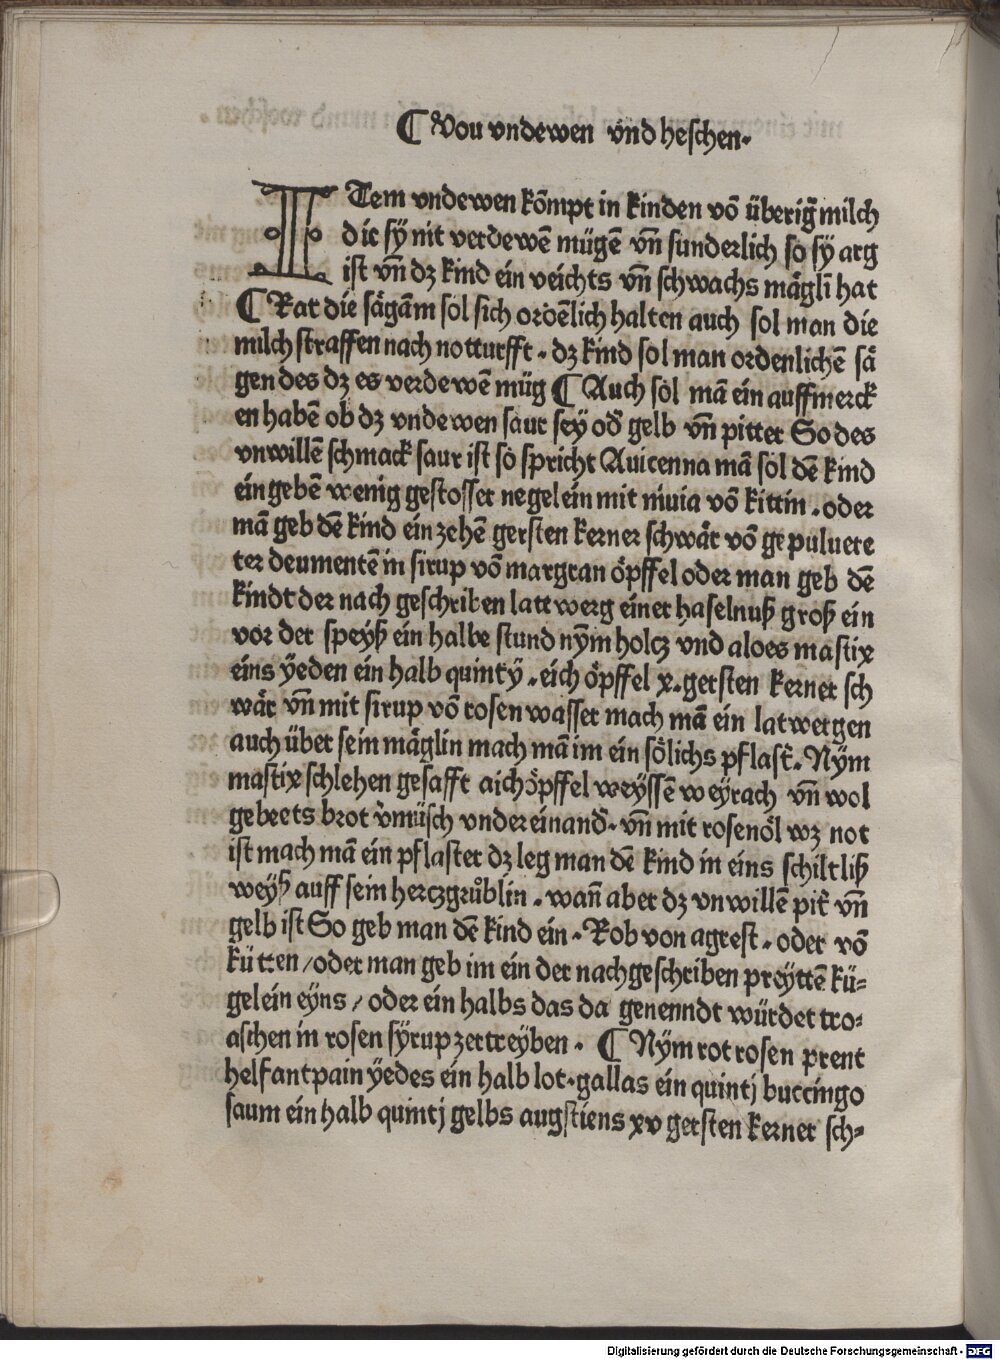 ¶ Vou vndewen vnd heschen.
ITem vndewen kōmpt in kinden vō überig̃ milch
die sÿ nit verdewē mügē vñ sunderlich so sÿ arg
ist vñ dz kind ein veichts vñ schwachs mäglī hat
¶ Rat die sägam̄ sol sich ordēlich halten auch sol man die
milch straffen nach notturfft . dz kind sol man ordenlichē sä
gen des dz es verdewē müg ¶ Auch sol mā ein auffmerck
en habē ob dz vndewen saur sey od̃ gelb vñ pitter So des
vnwillē schmack saur ist so spricht Auicenna mā sol dē kind
ein gebē wenig gestosser negelein mit niuia vō kittin . oder
mā geb dē kind ein zehē gersten kerner schwär vō gepuluere
ter deumentē in sirup vō margran öpffel oder man geb dē
kindt der nach geschriben lattwerg einer haselnuß groß ein
vor der speyß ein halbe stund nÿm holcz vnd aloes mastix
eins ÿeden ein halb quintÿ . eich öpffel x. gersten kerner sch
wär vñ mit sirup vō rosen wasser mach mā ein latwergen
auch über sein mäglin mach mā im ein sölichs pflast̃. Nÿm
mastix schlehen gesafft aichöpffel weyssē weyrach vñ wol
gebeets brot v̓müsch vndereinand̃. vñ mit rosenöl wz not
ist mach mā ein pflaster dz leg man dē kind in eins schiltliß
weyß auff sein herczgrůblin . wañ aber dz vnwillē pit̃ vñ
gelb ist So geb man dē kind ein . Rob von agrest . oder vō
kütten / oder man geb im ein der nachgeschriben preÿttē kü⸗
gelein eÿns / oder ein halbs das da genenndt würdet tro⸗
aschen in rosen sÿrup zertreÿben . ¶ Nÿm rot rosen prent
helfantpain ÿedes ein halb lot . gallas ein quintj buccingo
saum ein halb quintj gelbs augstiens xv gersten kerner sch⸗
Digitalisierung gefördert durch die Deutsche Forschungsgemeinschaft - DFG